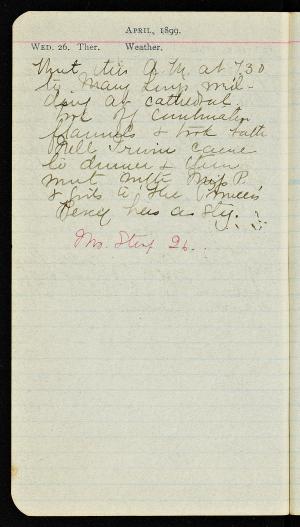 APRIL, 1899.
WED. 26. THER. WEATHER.
Went this A.M. at 7.30
to Mary wed-
ding at cathedral
took off Combination
flannels & took bath
Nell Irwin came
to dinner & then
went with Miss P.
& girls to the
Percy has a sty.
Mr. 26.